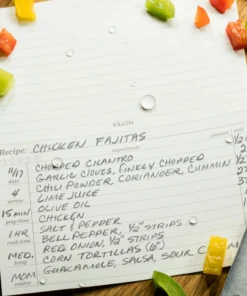 NOTES
Recipe: CHICKEN FAJITAS
ingredients
CHOPPED CILANTRO
11/17 GARLIC CLOVES, FINELY CHOPPED
date CHILI POWDER, CORIANDER, CUMMIN
4 LIME JUICE
serves OLIVE OIL
15 MIN CHICKEN
prep time SALT & PEPPER
1 HR BELL PEPPER, 1/2" STRIPS
cook time RED ONION, 1/2" STRIPS
MED. CORN TORTILLAS (6")
MOM GUACAMOLE, SALSA, SOUR
source